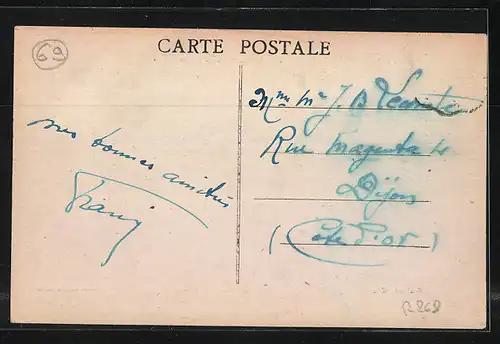 69
CARTE POSTALE
mes bonnes amitiés
Mme Mr J. B
Rue Magenta
Dijon
(Côte d'or)
R268